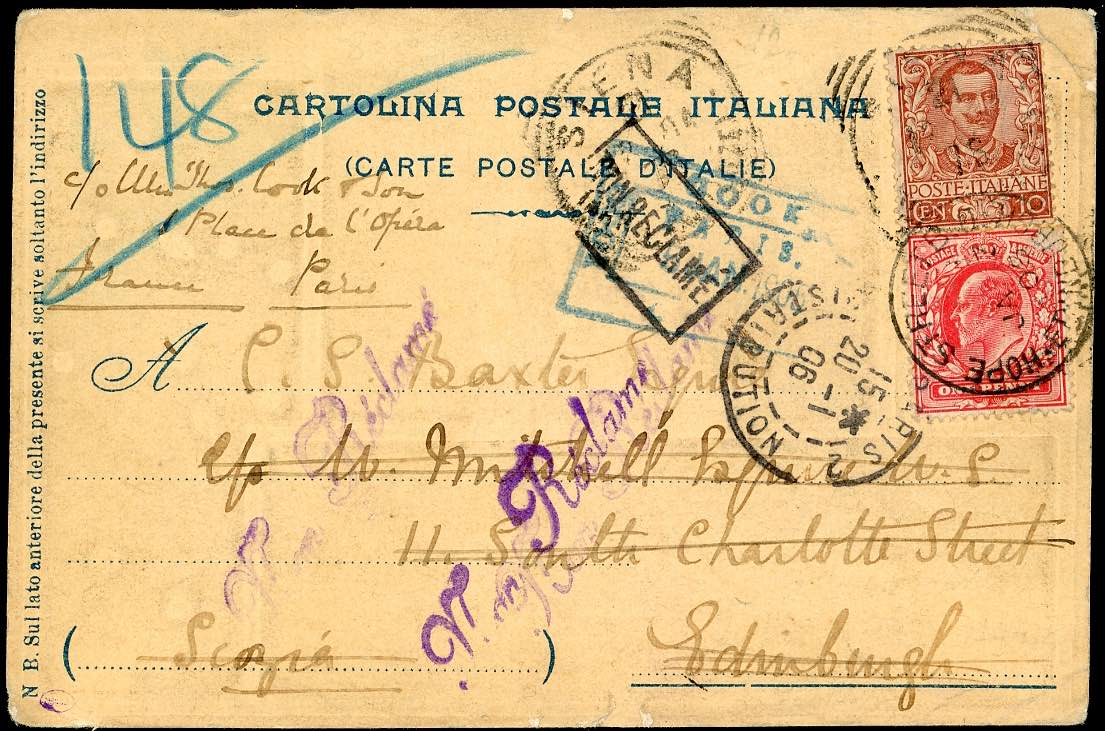 148
CARTOLINA POSTALE ITALIANA
(CARTE POSTALE D'ITALIE)
c/o Thos. Cook & Son
1 Place de l'Opéra
France Paris
A C. S. Baxter Esqre
c/o W. Mitchell Esquire W. S.
11. South Charlotte Street
( Scozia )
Edinburgh
N B. Sul lato anteriore della presente si scrive soltanto l'indirizzo
SIENA
UNRECLAIMED
COOK
PARIS.
Non Réclamé
Non Réclamé
PARIS
DISTRIBUTION
15
20 - 1
06
2
POSTE·ITALIANE
CEN 10
POSTAGE & REVENUE
ONE PENNY
HOPE ST
JA
06